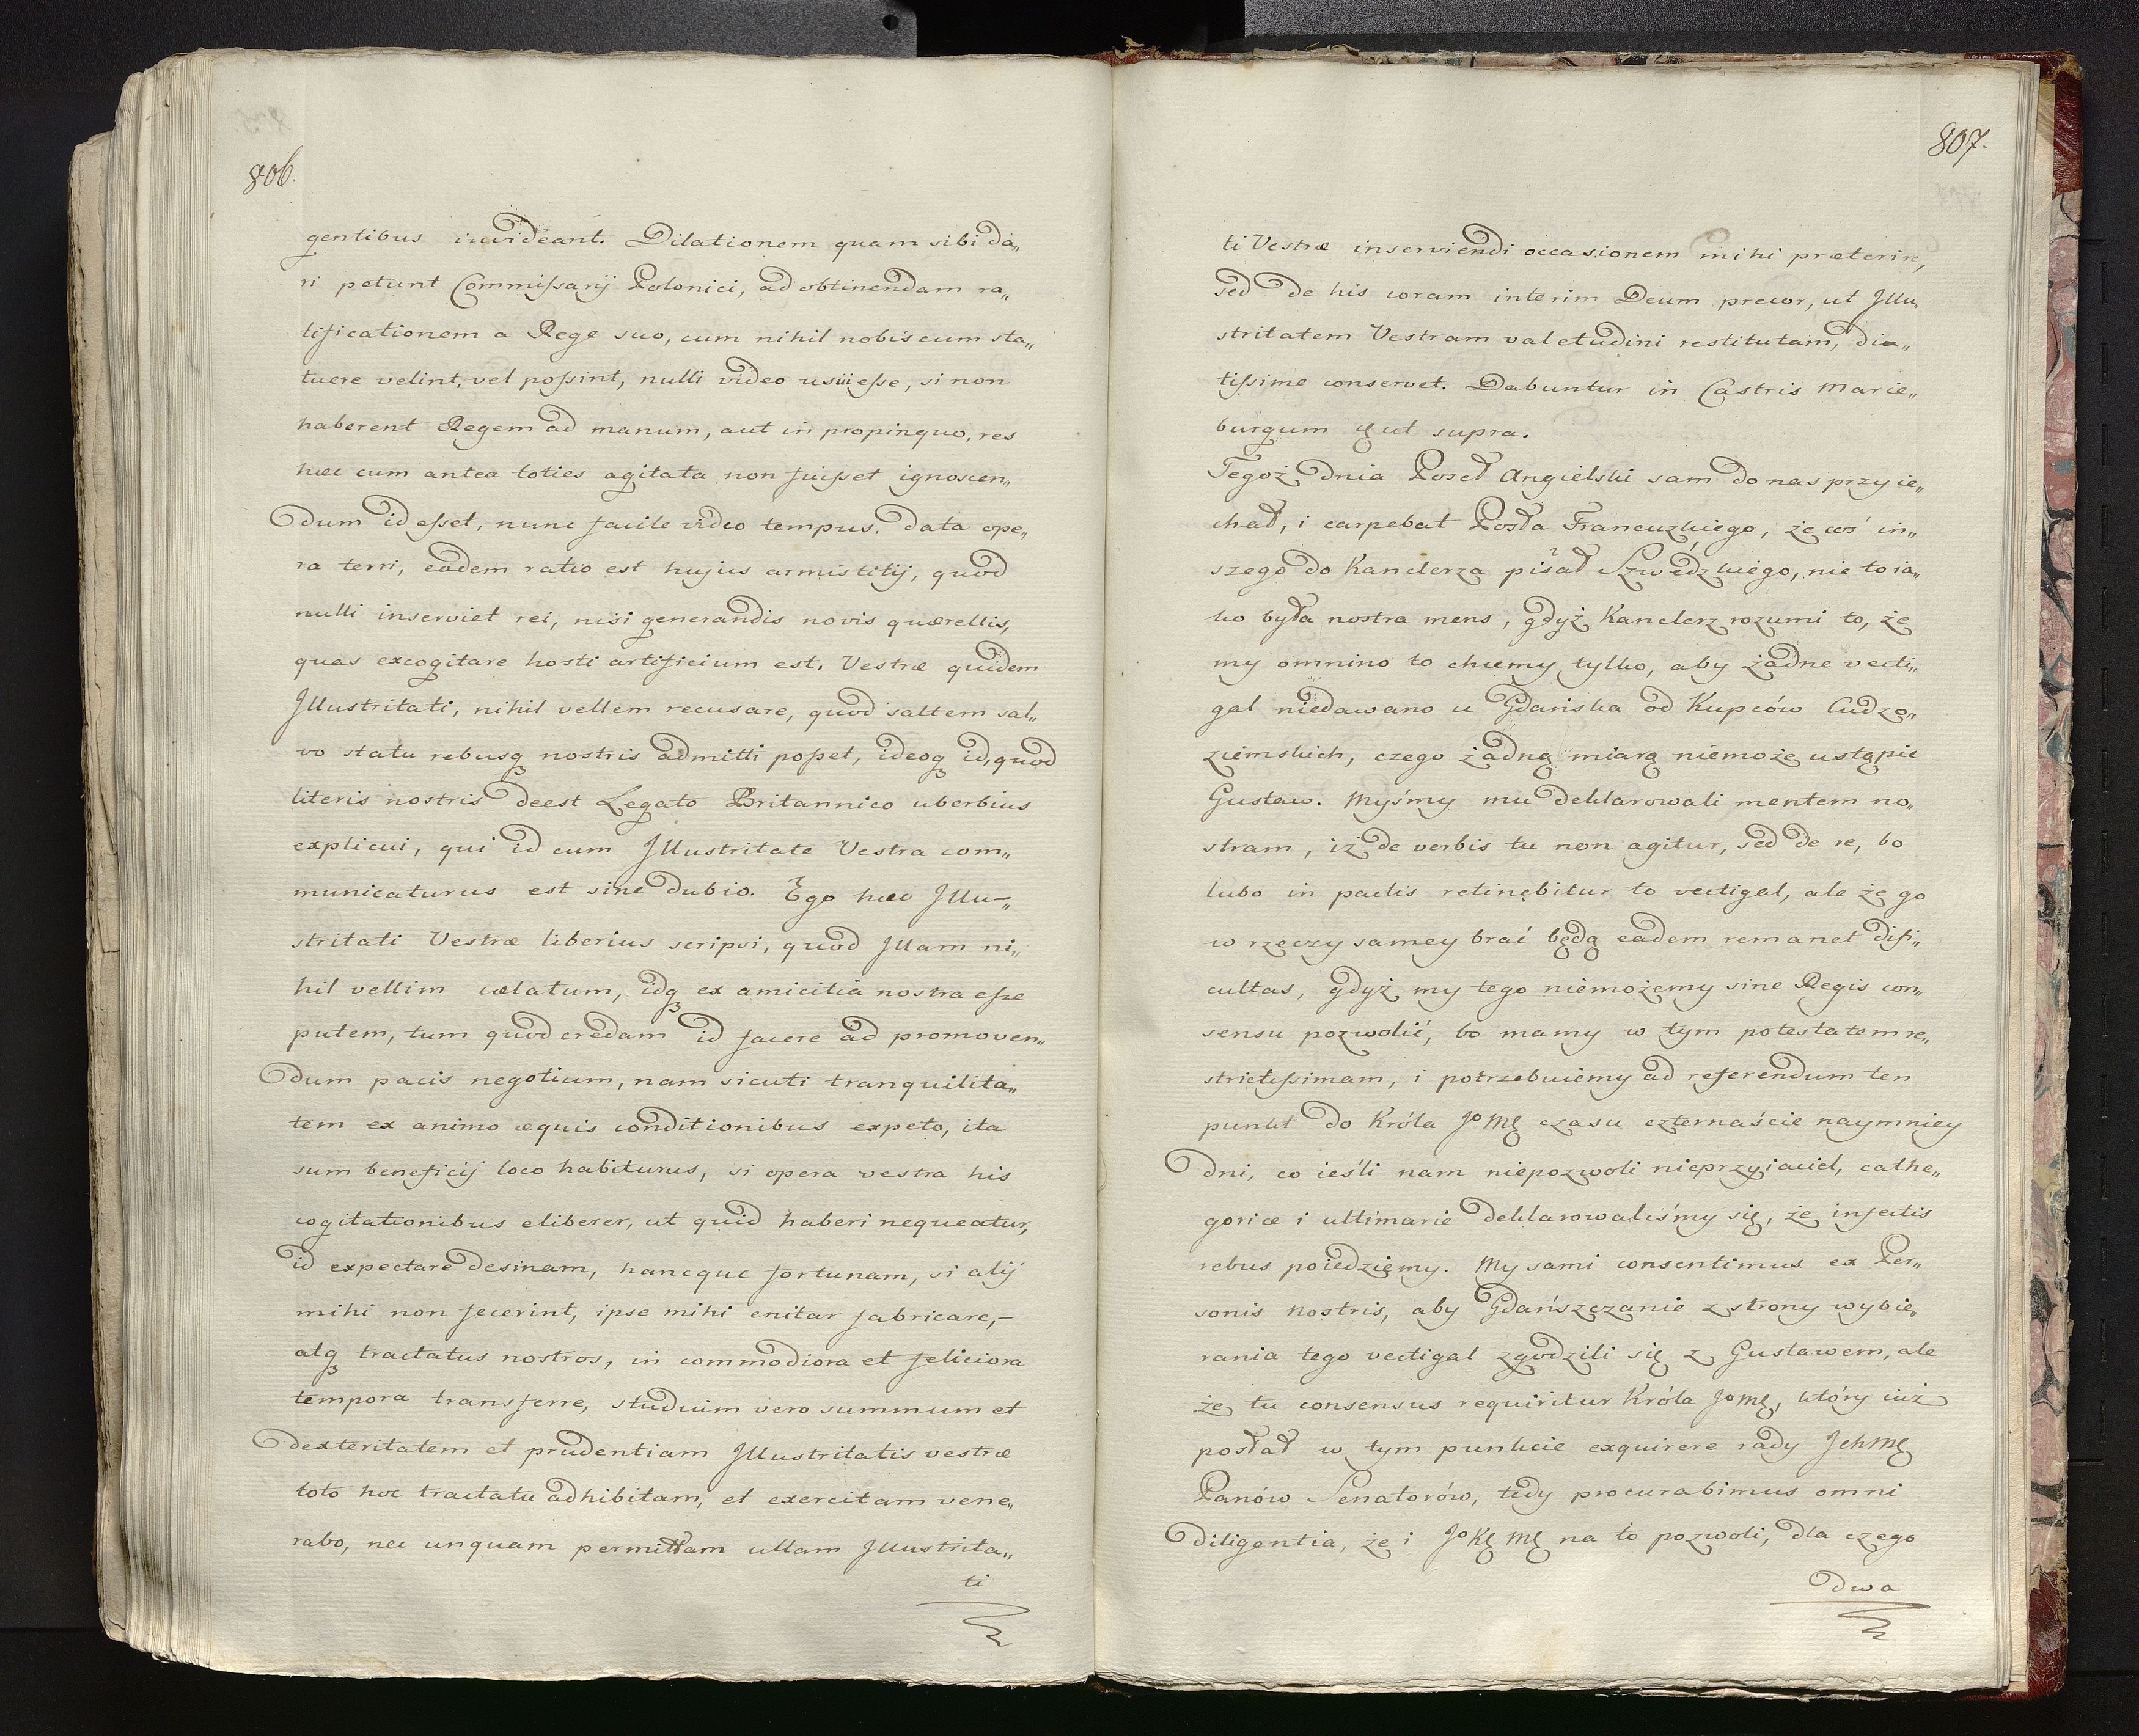 806.
gentibus invideant. Dilationem quam sibi da„
ri petunt Commißarij Polonici, ad obtinendam ra„
tificationem a Rege suo, cum nihil nobiscum sta„
tuere velint, vel poßint, nulli video usui eße, si non
haberent Regem ad manum, aut in propinquo, res
hæc cum antea toties agitata non fuißet ignoscen„
dum id eßet, nunc facile video tempus. data ope„
ra terri, eadem ratio est hujus armistitij, quod
nulli inserviet rei, nisi generandis novis quærellis,
quas excogitare hosti artificium est. Vestræ quidem
Illustritati, nihil vellem recusare, quod saltem sal„
vo statu rebusq nostris admitti poßet, ideoq id, quod
literis nostris deest Legato Britannico uberbius
explicui, qui id cum Illustritate Vestra com„
municaturus est sine dubio. Ego hæc Illu-„
stritati Vestræ liberius scripsi, quod Illam ni„
hil vellim cælatum, idq ex amicitia nostra eße
putem, tum quod credam id facere ad promoven„
dum pacis negotium, nam sicuti tranquilita„
tem ex animo æquis conditionibus expeto, ita
sum beneficij loco habiturus, si opera vestra his
cogitationibus eliberer, ut quid haberi nequeatur,
id expectare desinam, hancque fortunam, si alij
mihi non fecerint, ipse mihi enitar fabricare,-
atq tractatus nostros, in commodiora et feliciora
tempora transferre, studium vero summum et
dexteritatem et prudentiam Illustritatis vestræ
toto hoc tractatu adhibitam, et exercitam vene„
rabo, nec unquam permittam ullam Illustrita„
ti
807.
ti Vestræ inserviendi occasionem mihi præterire,
sed de his coram interim Deum precor, ut Illu„
stritatem Vestram valetudini restitutam, diu„
tißime conservet. Dabuntur in Castris Marie„
burgum ut supra.
Tegoż dnia Poseł Angielski sam do nas przyie„
chał, i carpebat Posła Francuzkiego, że coś in„
szego do Kanclerza pisał Szwedzkiego, nie to ia„
ko była nostra mens, gdyż Kanclerz rozumi to, że
my omnino to chcemy tylko, aby żadne vecti„
gal niedawano u Gdańska od Kupców Cudzo„
ziemskich, czego żadną miarą niemoże ustąpić
Gustaw. Myśmy mu deklarowali mentem no„
stram, iż de verbis tu non agitur, sed de re, bo
lubo in pactis retinebitur to vectigal, ale że go
w rzeczy samey brać będą eadem remanet difi„
cultas, gdyż my tego niemożemy sine Regis con„
sensu pozwolić, bo mamy w tym potestatem re„
strictißimam, i potrzebuiemy ad referendum ten
punkt do Króla JoMę czasu czternaście naymniey
dni, co ieśli nam niepozwoli nieprzyiaciel, cathe„
goricæ i ultimarie deklarowaliśmy się, że infectis
rebus poiedziemy. My sami consentimus ex Per„
sonis Nostris, aby Gdańszczanie z strony wybie„
rania tego vectigal zgodzili się z Gustawem, ale
że tu consensus requiritur Króla JoMę, który iuż
posłał w tym punkcie exquirere rady JchMę
Panów Senatorów, tedy procurabimus omni
diligentia, że i JoKę Mę na to pozwoli, dla czego
dwa